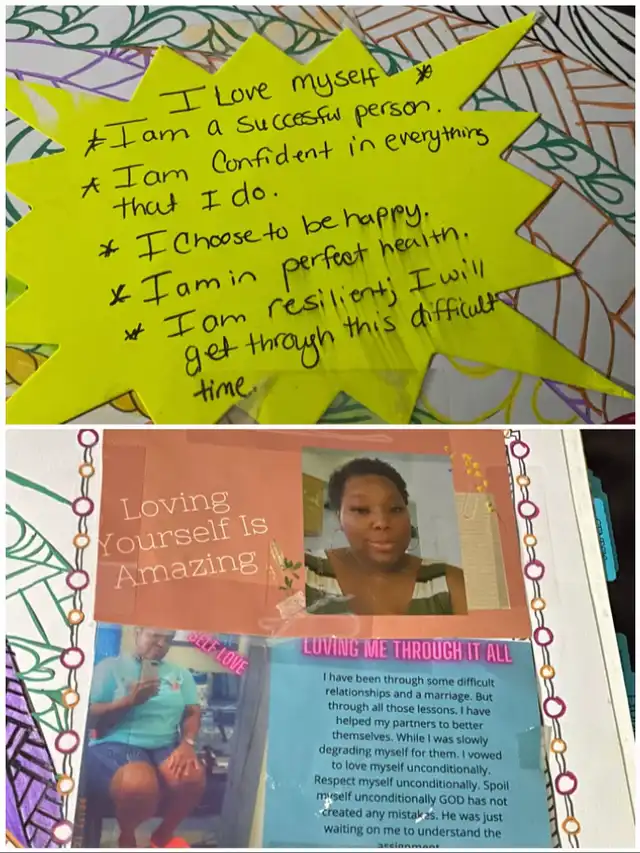 I Love myself *
* I am a succesful person.
* I am Confident in everything
that I do.
* I Choose to be happy.
* I am in perfect health.
* I am resilient; I will
get through this difficult
time.
Loving
Yourself Is
Amazing
SELF LOVE
LOVING ME THROUGH IT ALL
I have been through some difficult
relationships and a marriage. But
through all those lessons. I have
helped my partners to better
themselves. While I was slowly
degrading myself for them. I vowed
to love myself unconditionally.
Respect myself unconditionally. Spoil
myself unconditionally GOD has not
created any mistakes. He was just
waiting on me to understand the
assignment